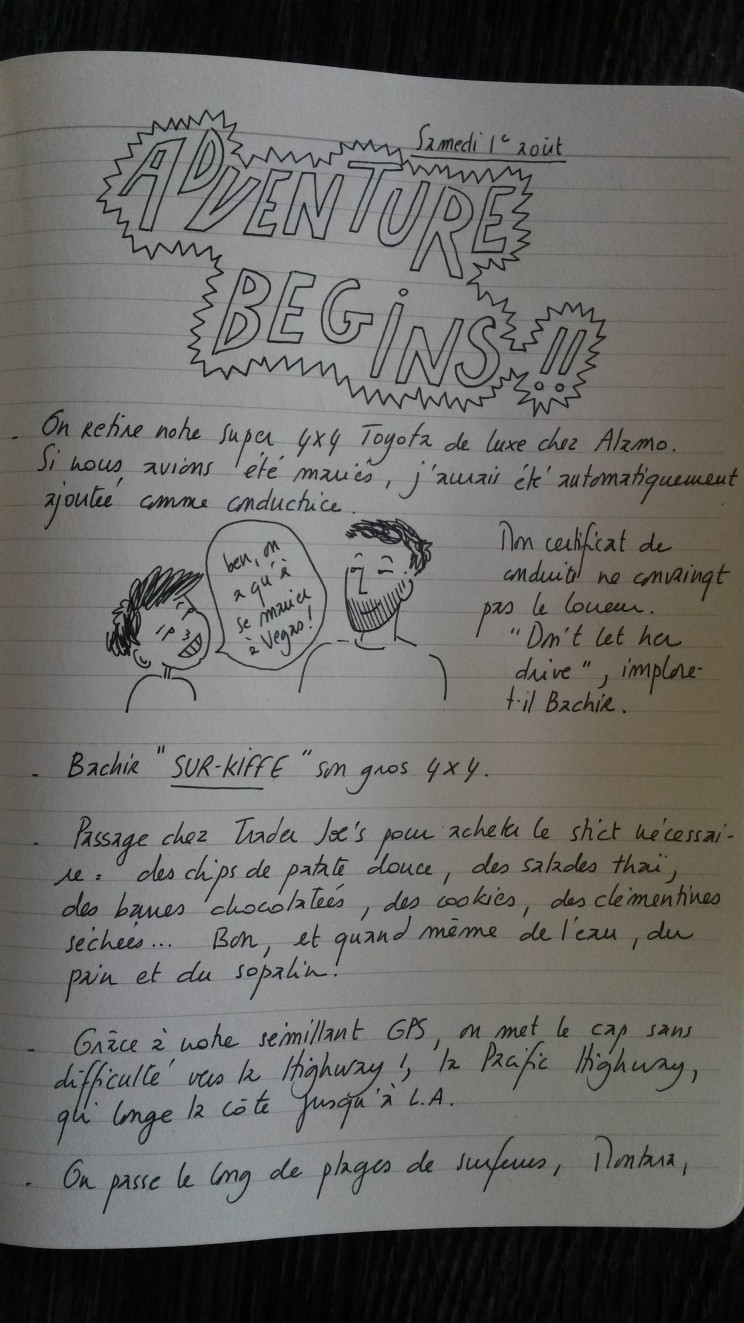 Samedi 1e août
ADVENTURE
BEGINS !!
- On retire notre super 4x4 Toyota de luxe chez Alamo.
Si nous avions été mariés, j'aurais été automatiquement
ajoutée comme conductrice.
ben, on
a qu'à
se marier
à Vegas !
Mon certificat de
conduite ne convainqt
pas le loueur.
"Don't let her
drive", implore-
t-il Bachir.
- Bachir "SUR-KIFFE" son gros 4x4.
- Passage chez Trader Joe's pour acheter le strict nécessai-
re : des chips de patate douce, des salades thaï,
des barres chocolatées, des cookies, des clémentines
séchées... Bon, et quand même de l'eau, du
pain et du sopalin !
- Grâce à notre sémillant GPS, on met le cap sans
difficulté vers la Highway 1, la Pacific Highway,
qui longe la côte jusqu'à L.A.
- On passe le long de plages de surfeurs, Montara,